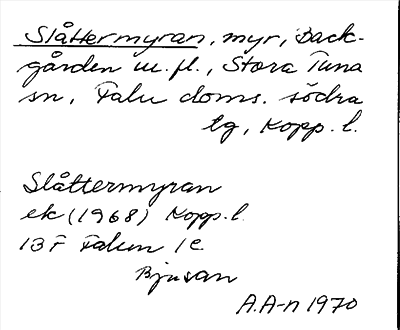 Slåttermyran, myr, Back-
gården m. fl., Stora Tuna
sn, Falu doms. södra
tg, Kopp. l.
Slåttermyran
ek (1968) Kopp. l.
13 F Falun 1 c.
Bjusan
A.A-n 1970